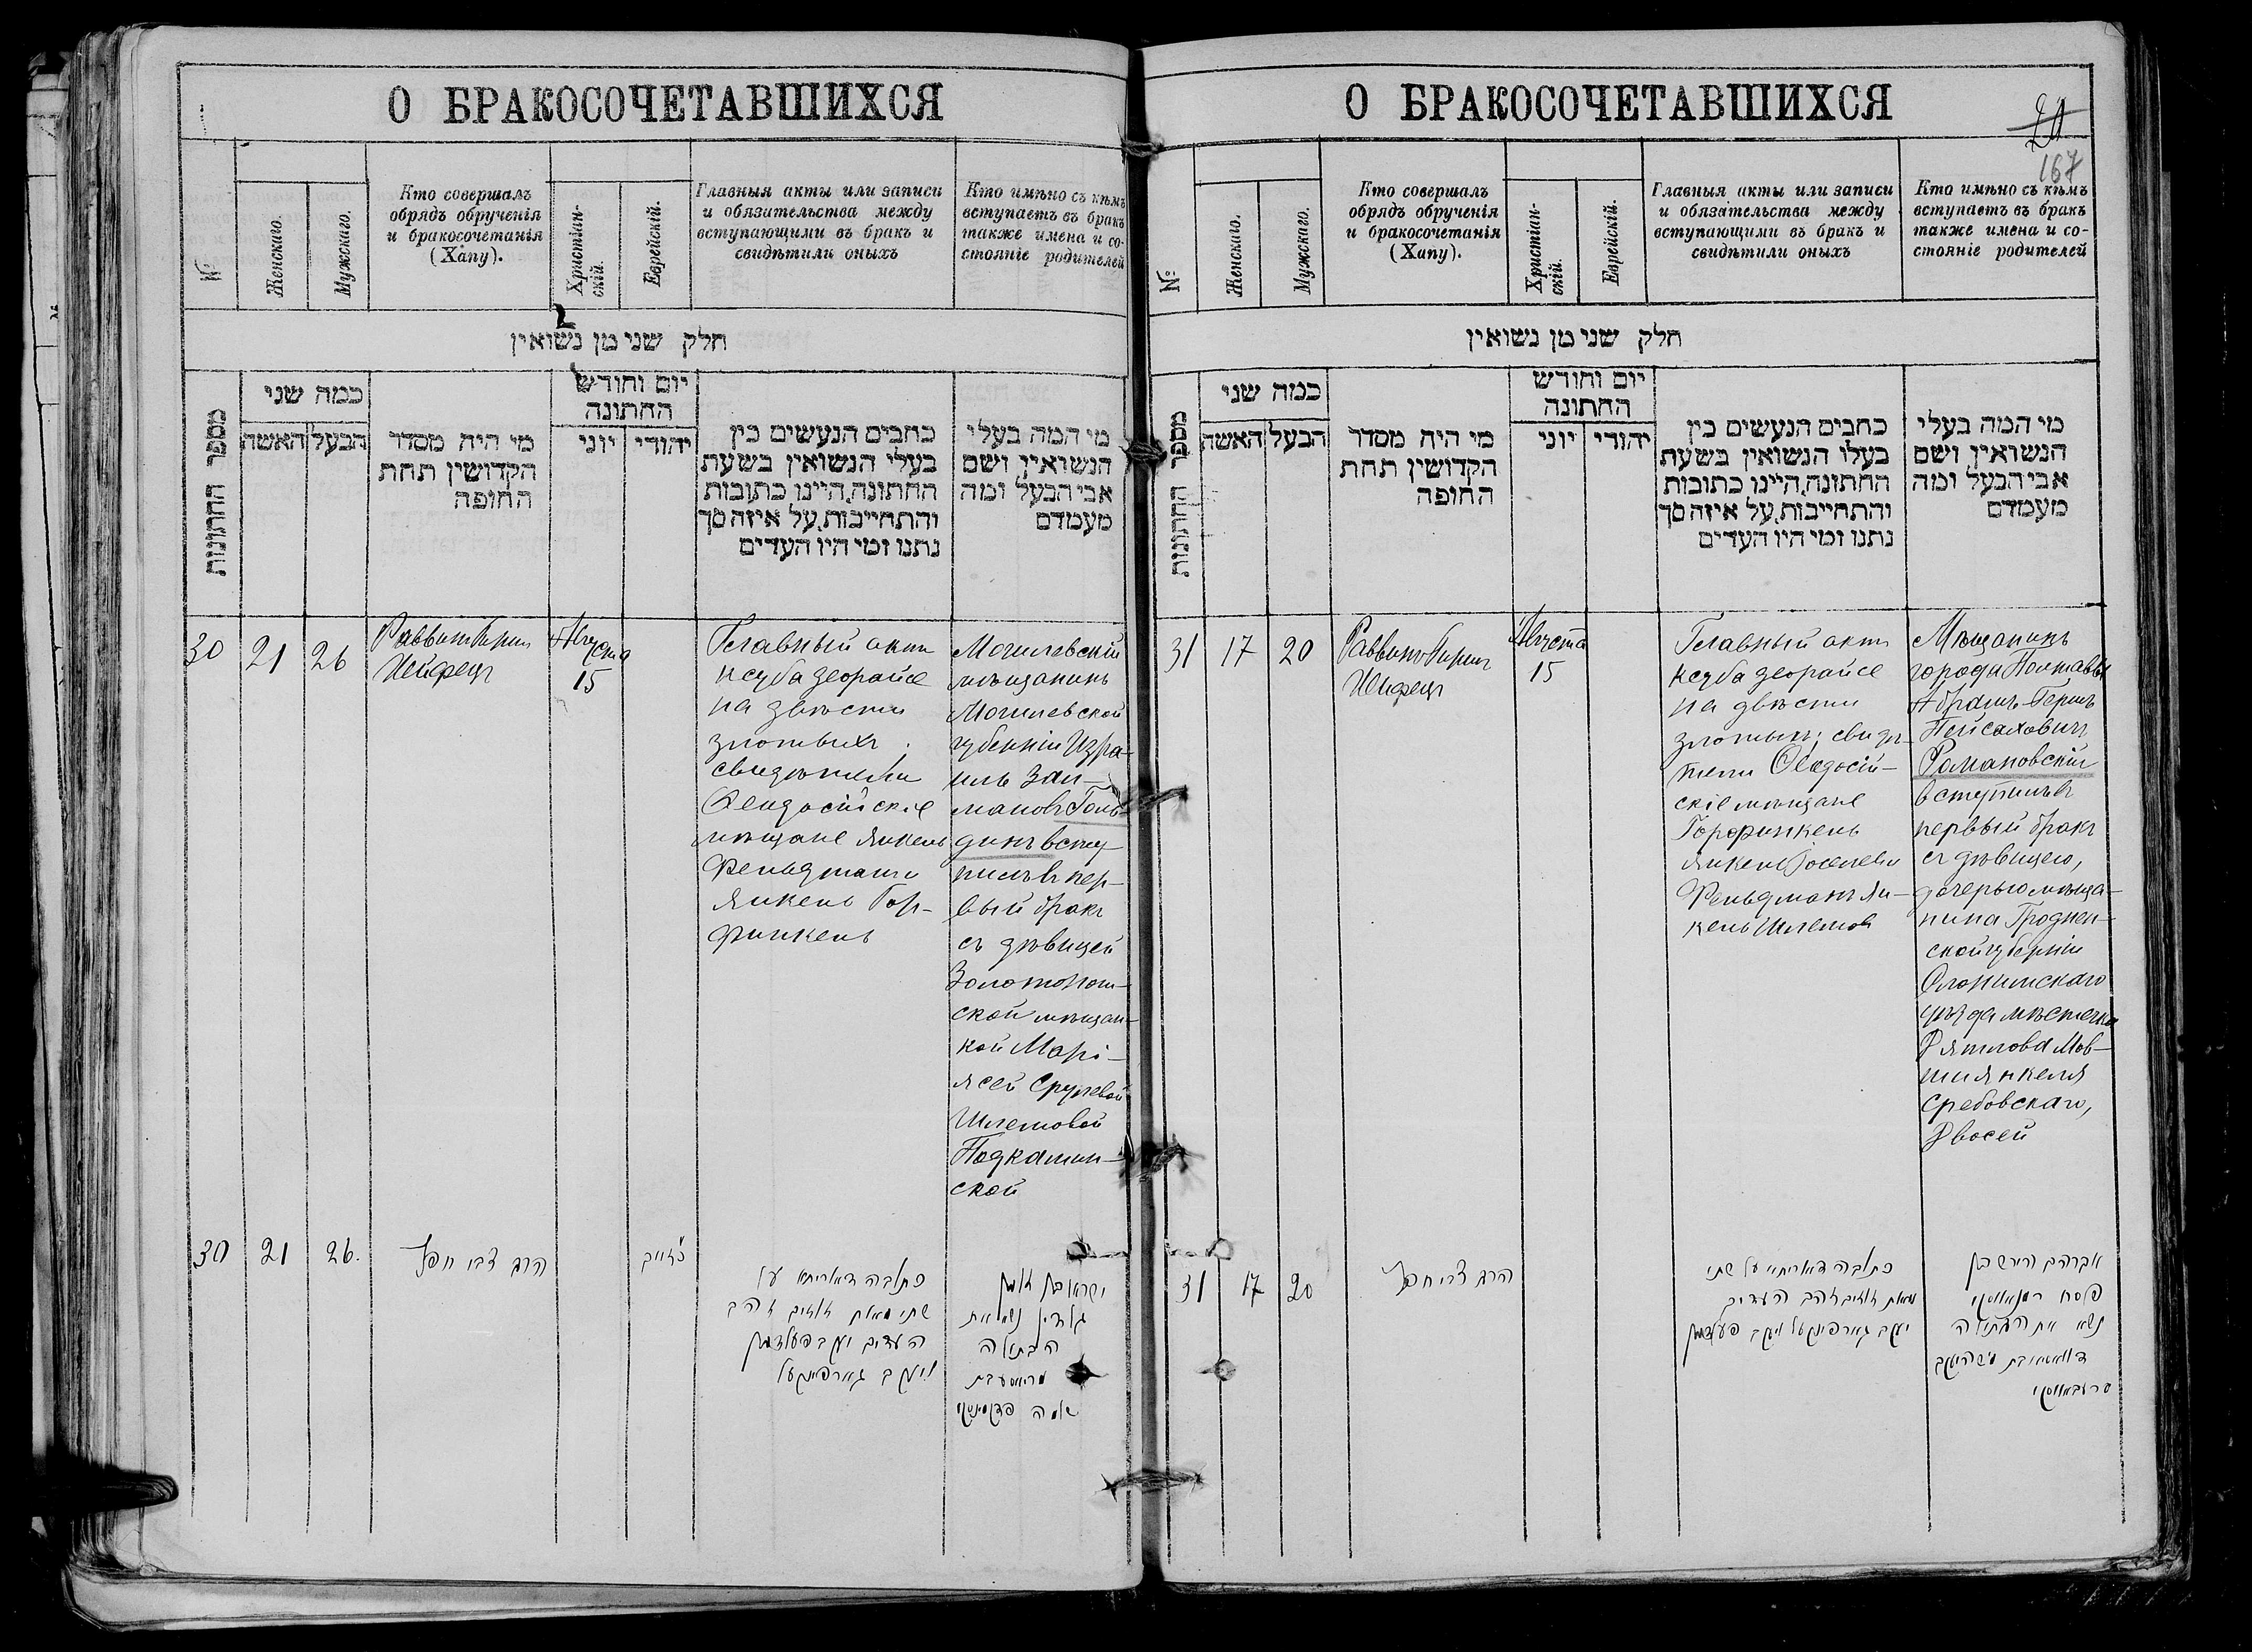 О БРАКОСОЧЕТАВШИХСЯ
№
Женскаго.
Мужскаго.
Кто совершалъ
обрядъ обрученія
и бракосочетанія
(Хапу).
Христіан-
скій.
Еврейскій.
Главныя акты или записи
и обязательства между
вступающими въ бракъ и
свидѣтили оныхъ
Кто имѣно съ кѣмъ
вступаетъ въ бракъ
также имена и со-
стояніе родителей
חלק שני מן נשואין
מספר החתונות
כמה שני
האשה
הבעל
מי היה מסדר
הקדושין תחת
החופה
יום וחודש
החתונה
יוני
יהודי
כתבים הנעשים בין
בעלי הנשואין בשעת
החתונה, היינו כתובות
והתחייבות, על איזה סך
נתנו ומי היו העדים
מי המה בעלי
הנשואין ושם
אבי הבעל ומה
מעמדם
30
21
26
Раввинъ Гирш
Хейфецъ
Августа
15
Главный актъ
ксуба деорайсе
на двѣсти
злотыхъ.
свидѣтели
Феодосійскіе
мѣщане Янкель
Фельдманъ и
Янкель Гор-
финкель
Могилевскій
мѣщанинъ
Могилевской
губерніи Изра-
иль Зал-
мановъГоль-
динъ всту-
пилъ въ пер-
вый бракъ
съ дѣвицей
Золотонош-
ской мѣщан-
кой Марі-
ясей Срулевой
Шлемовой
Подкамин-
ской
30
21
26.
הרב צבי חפץ
כתובה דאורייתא על
שתי מאות זוזים זהב
העדים יעקב פעלדמאן
ויעקב גארפינקעל
ישראל בן זלמן
גולדין נשא את
הבתולה
שלמה פדקמינסקי
О БРАКОСОЧЕТАВШИХСЯ
20
167
№
Женскаго.
Мужскаго.
Кто совершалъ
обрядъ обрученія
и бракосочетанія
(Хапу).
Христіан-
скій.
Еврейскій.
Главныя акты или записи
и обязательства между
вступающими въ бракъ и
свидѣтили оныхъ
Кто имѣно съ кѣмъ
вступаетъ въ бракъ
также имена и со-
стояніе родителей
חלק שני מן נשואין
מספר החתונות
כמה שני
האשה
הבעל
מי היה מסדר
הקדושין תחת
החופה
יום וחודש
החתונה
יוני
יהודי
כתבים הנעשים בין
בעלי הנשואין בשעת
החתונה, היינו כתובות
והתחייבות, על איזה סך
נתנו ומי היו העדים
מי המה בעלי
הנשואין ושם
אבי הבעל ומה
מעמדם
31
17
20
Раввинъ Гирш
Хейфецъ
Августа
15
Главный актъ
ксуба деорайсе
на двѣсти
злотыхъ; свидѣ-
тели Феодосій-
скіе мѣщане
Горфинкель
Янкель Іоселевъ
Фельдманъ Ян-
кель Шлемов
Мѣщанинъ
города Полтавы
Абрамъ-Гершъ
Пейсаховичъ
Романовскій
вступилъ въ
первый бракъ
съ дѣвицею,
дочерью мѣща-
нина Гроднен-
ской губерніи
Слонимскаго
уѣзда мѣстечка
Дятлова Мов-
ши Янкеля
Сребовскаго,
Двосей
31
17
20
הרב צבי חפץ
כתובה דאורייתא על שתי
מאות זוזים זהב העדים
יעקב גארפינקעל ויעקב פעלדמאן
אברהם הירש בן
פסח ראמאנאווסקי
נשא את הבתולה
סרעבאווסקי